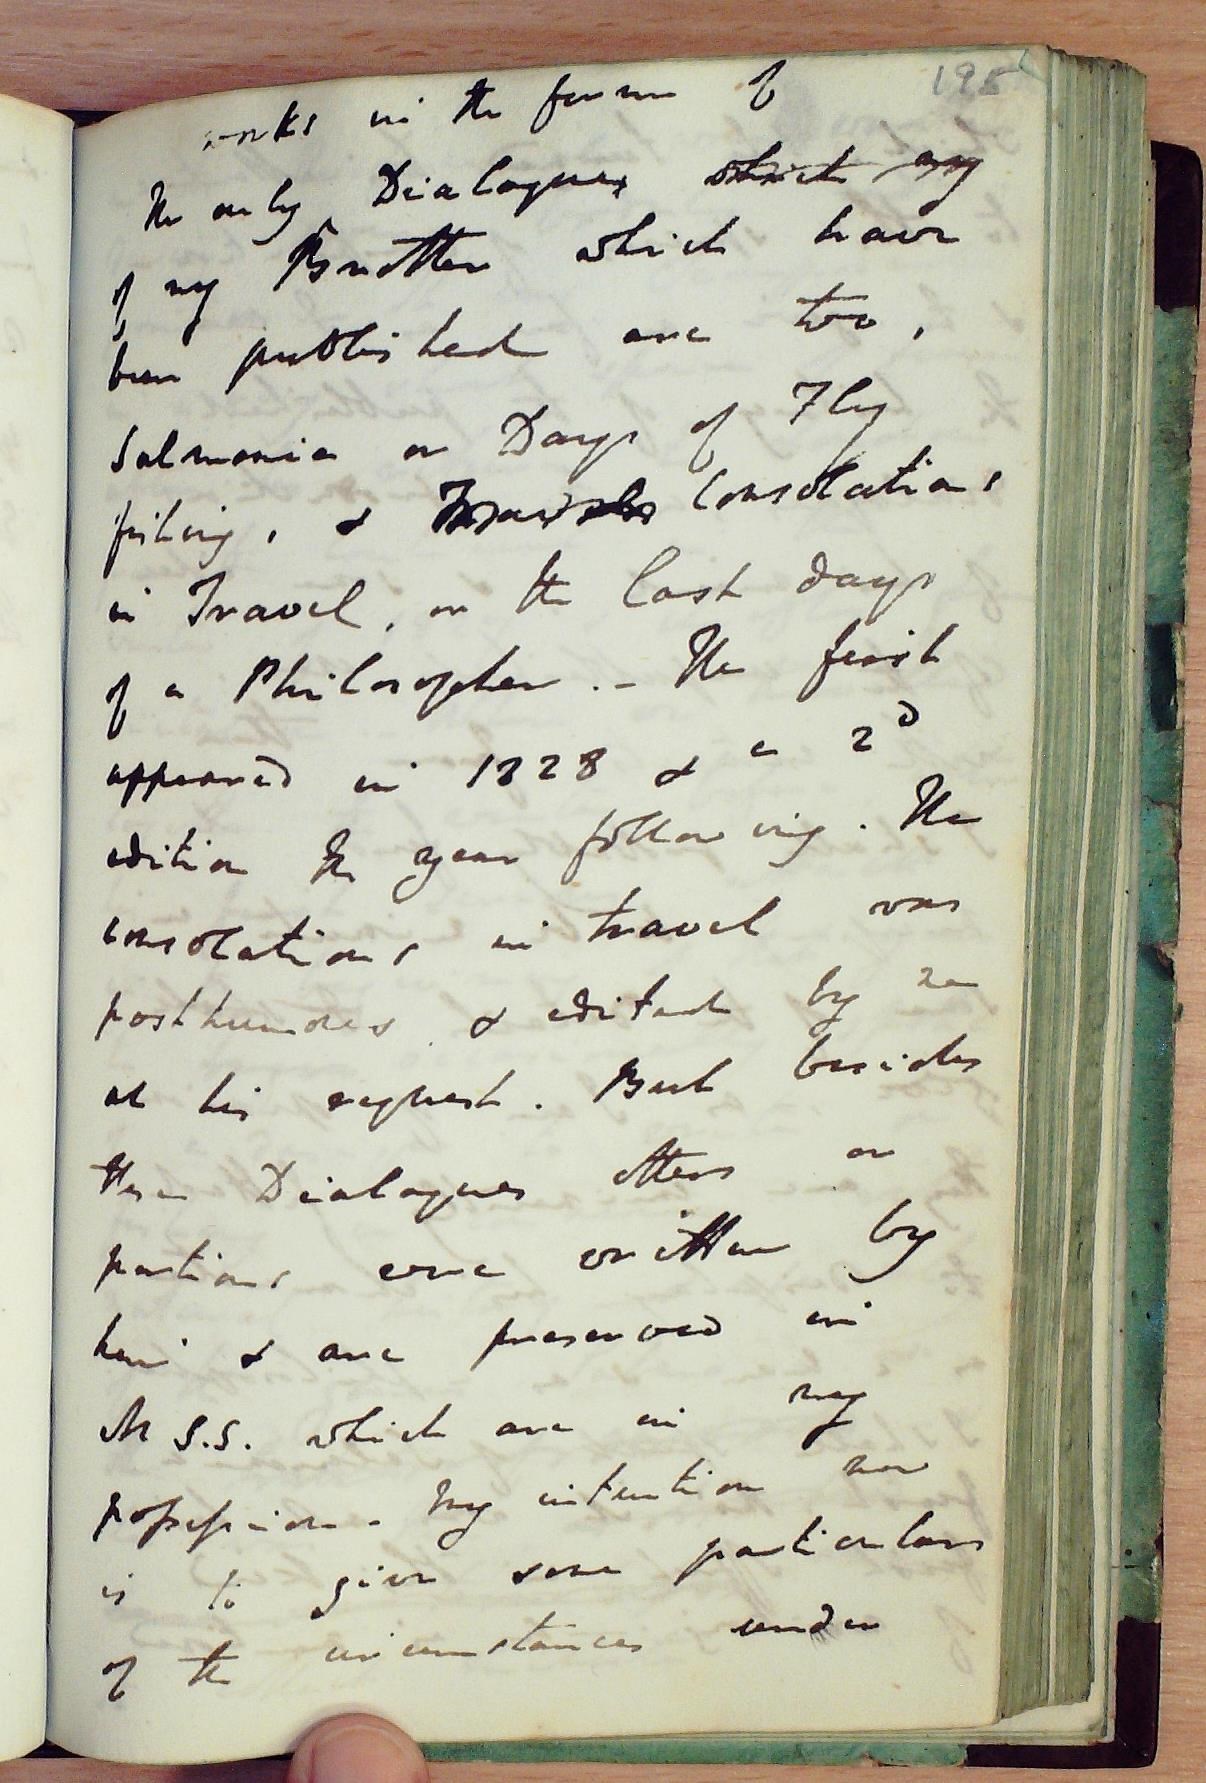 195
works in the form of
The only Dialogues which my
of my Brother which have
been published are two,
Salmonia or Days of Fly
fishing, & Travels Consolations
in Travel, or the last days
of a Philosopher. – The first
appeared in 1828 & a 2d
edition the year following. The
consolations in travel was
posthumous & edited by me
at his request. But besides
these Dialogues others or
portions were written by
him & are preserved in
M S.S. which are in my
possession. My intention now
is to give some particulars
of the circumstances under